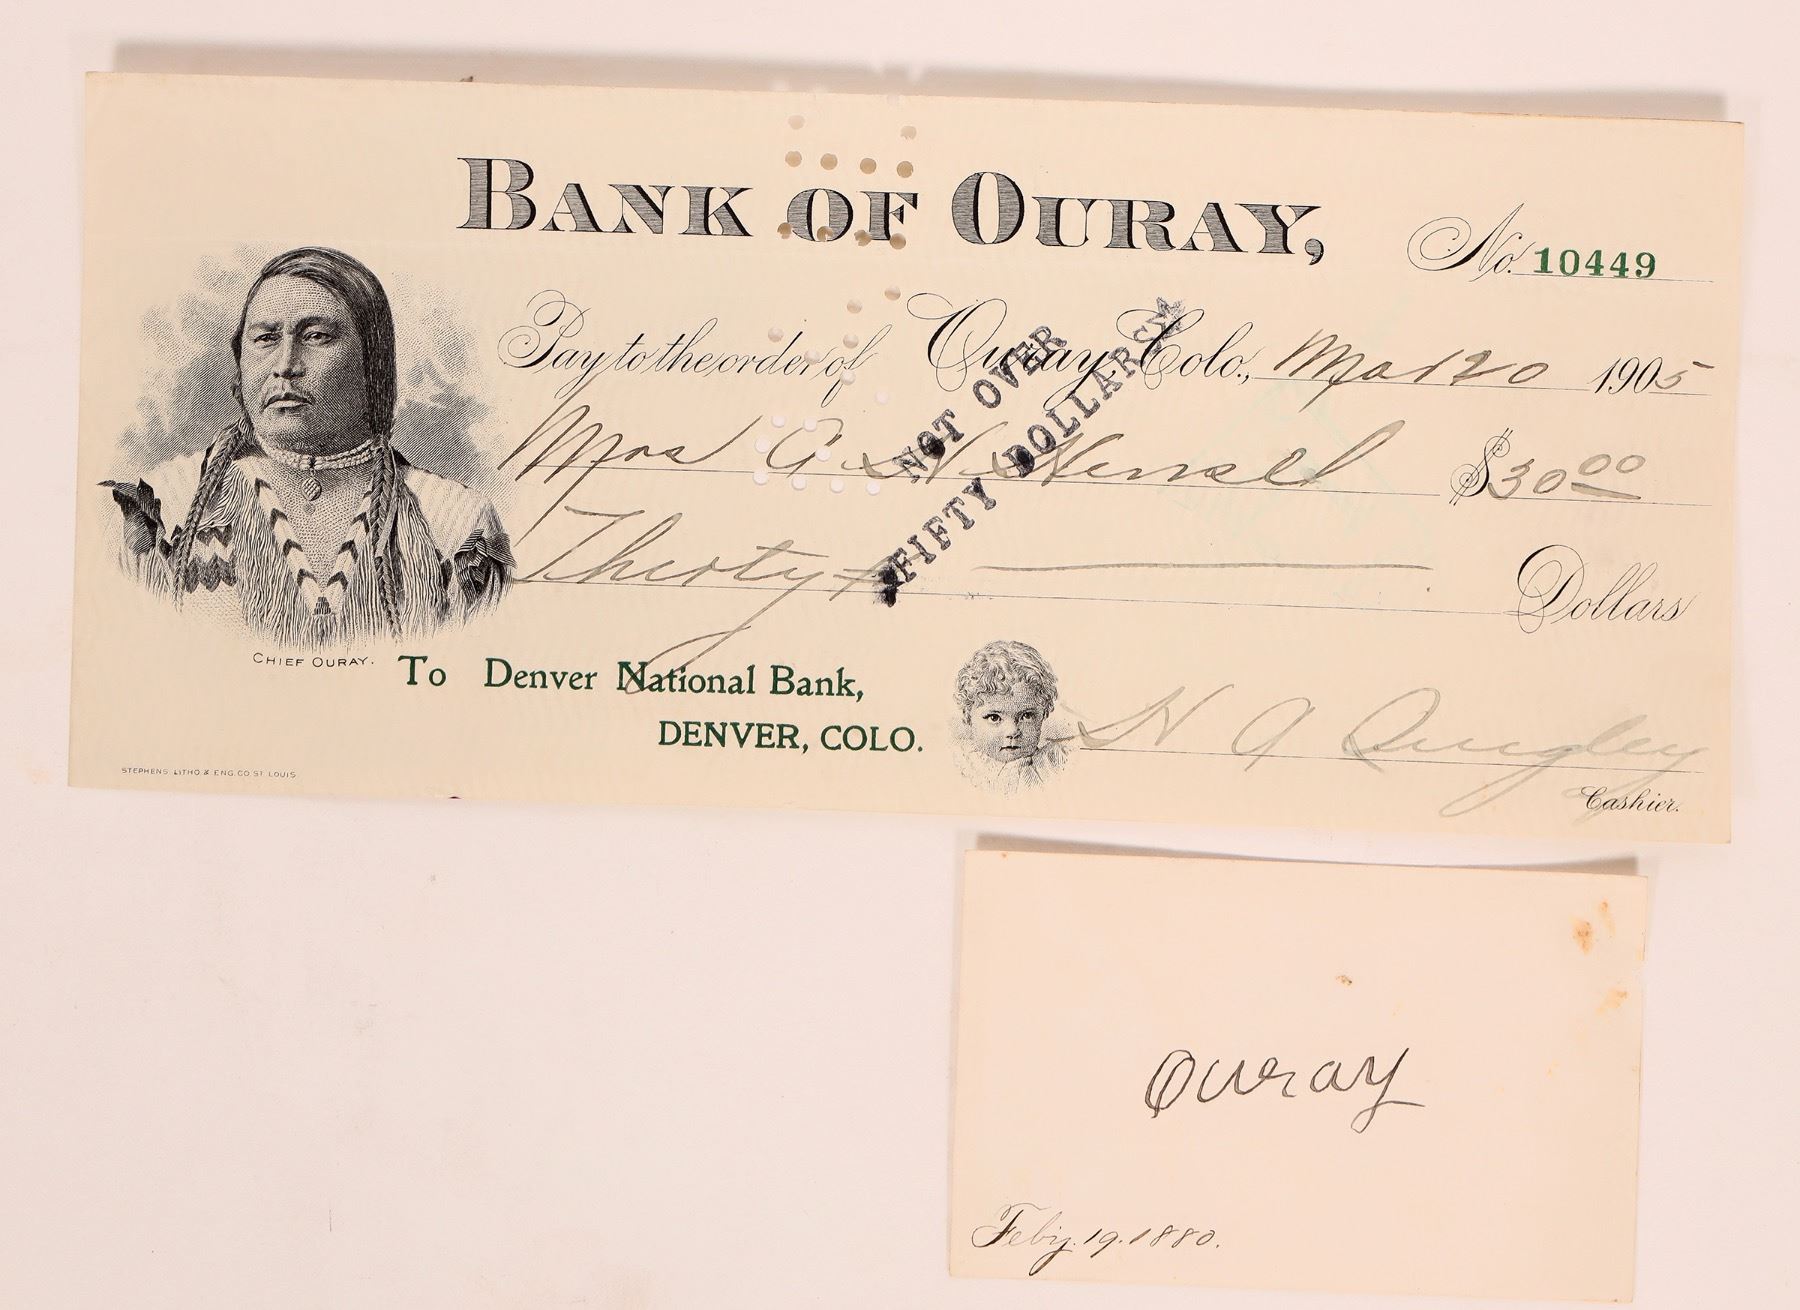 BANK OF OURAY,
No. 10449
Pay to the order of Ouray, Colo., Mar 20 1905
NOT OVER
FIFTY DOLLARS
Mrs $30 00
Thirty
Dollars
CHIEF OURAY.
To Denver National Bank,
DENVER, COLO.
Quigley
Cashier.
STEPHENS LITHO & ENG. CO. ST. LOUIS
Ouray
Feby. 19. 1880.